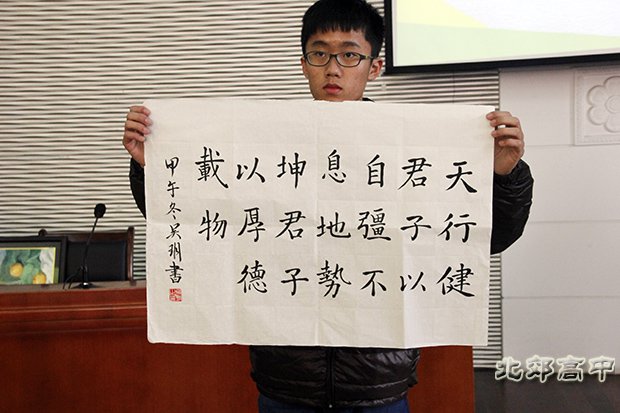 天行健
君子以
自彊不
息地勢
坤君子
以厚德
載物
甲午冬吴玥書
北郊高中